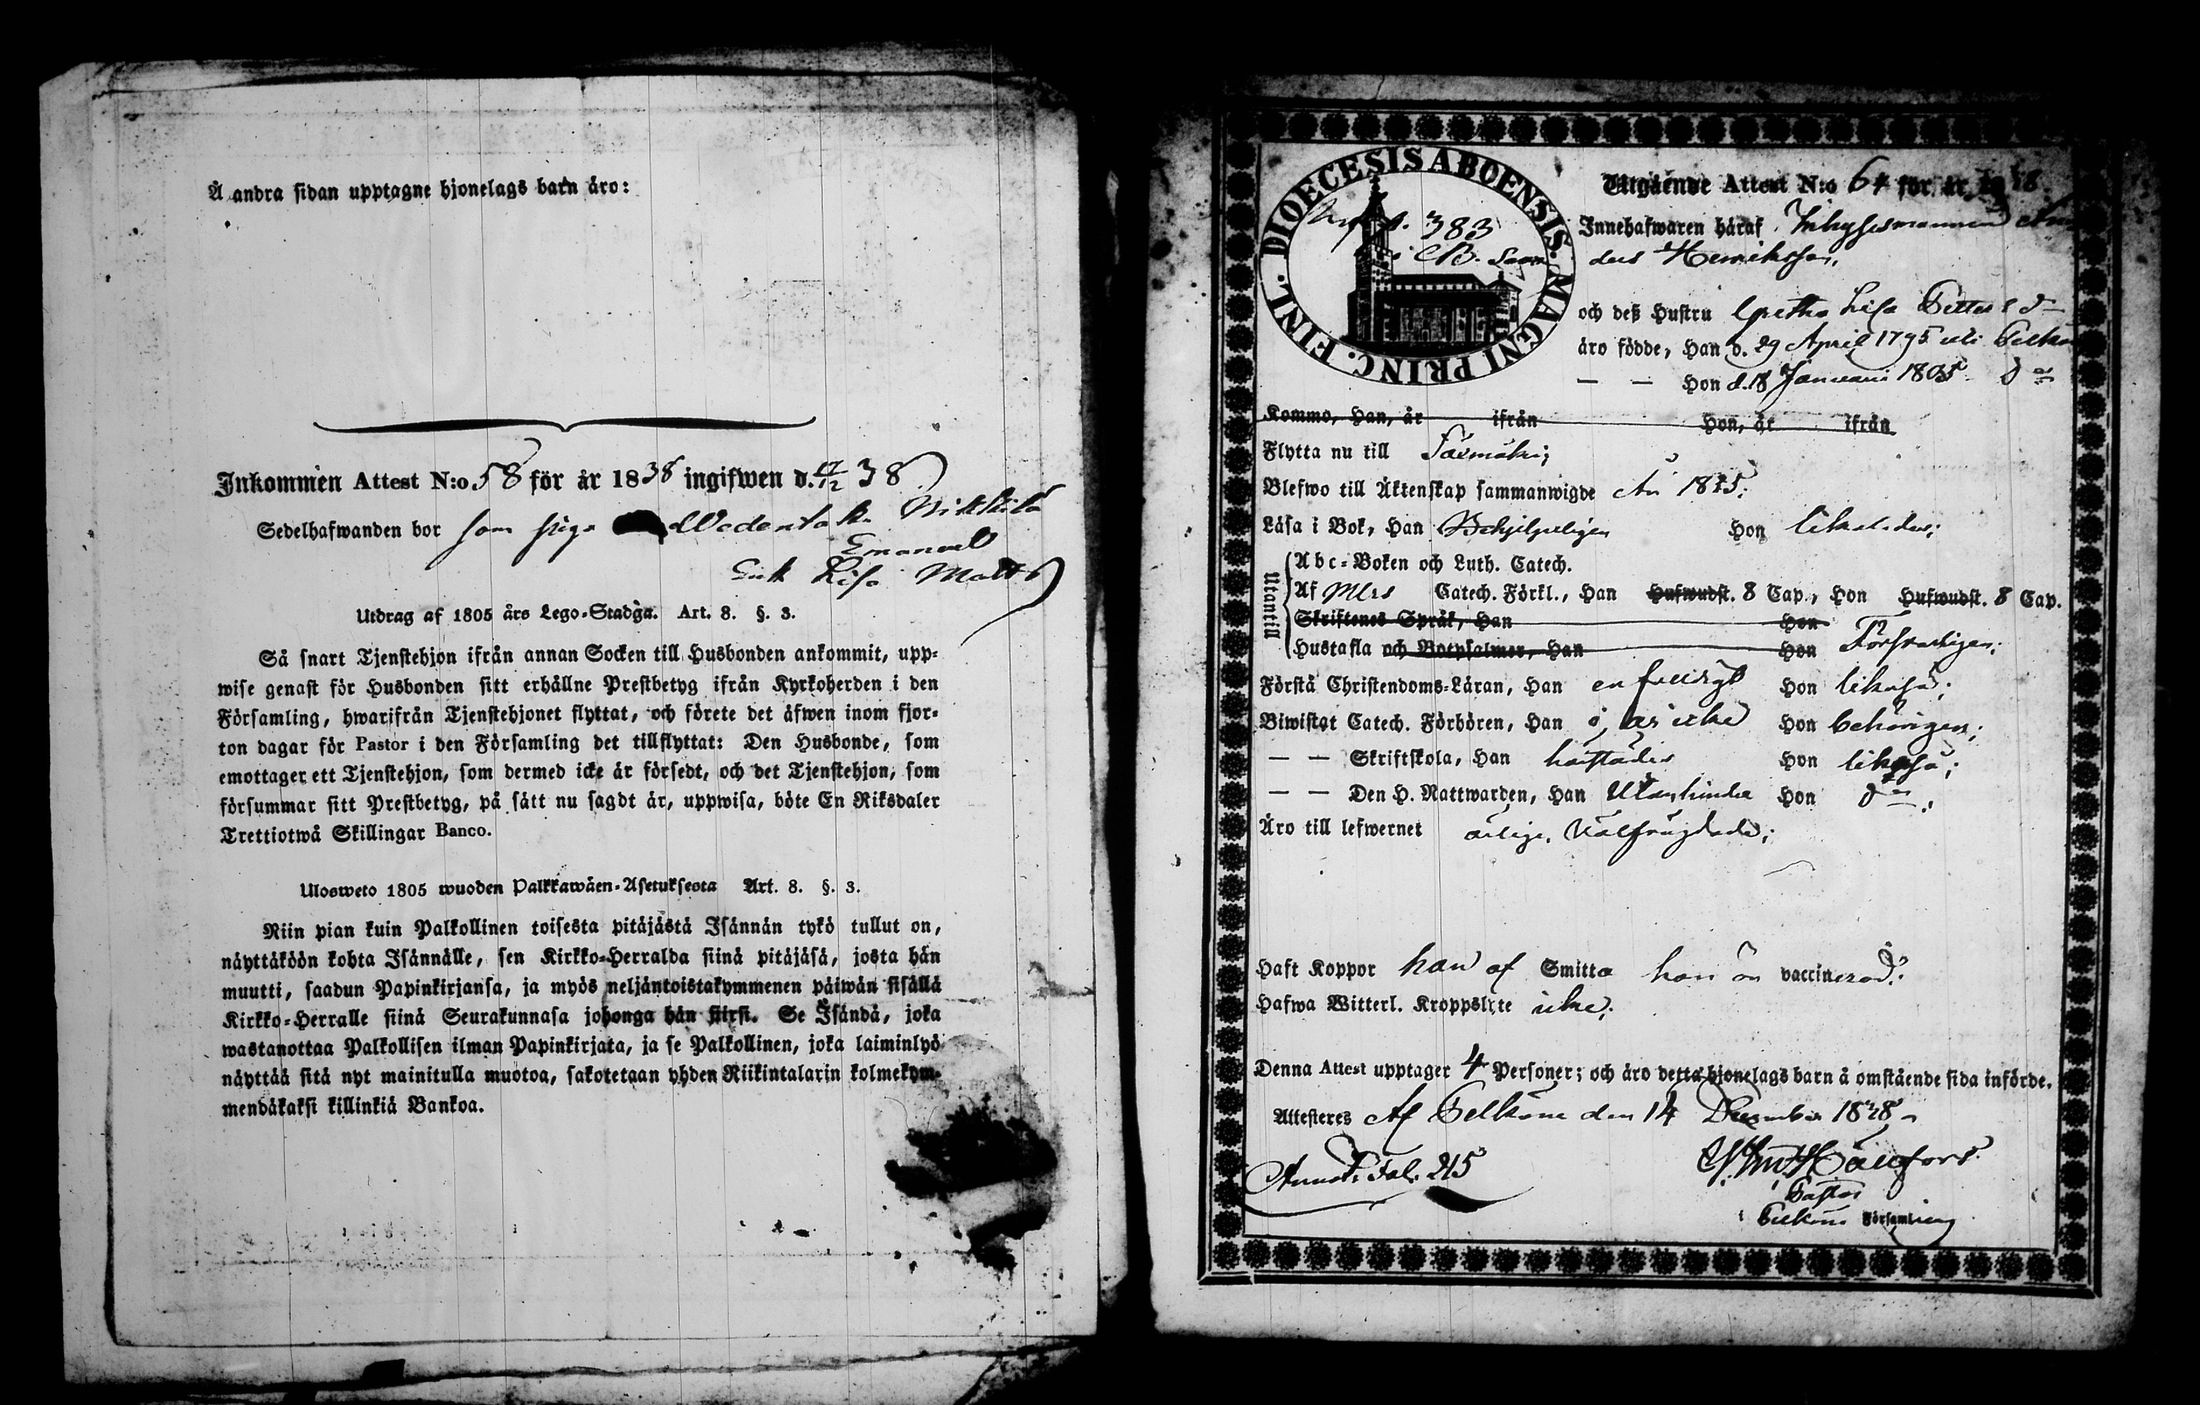 Å andra sidan upptagne hjonelags barn äro:
Inkommen Attest N:o 58 för år 1838 ingifwen d. 17/12 38
Sedelhafwanden bor som piga
Emanuel
Lisa Matts
Utdrag af 1805 års Lego-Stadga. Art. 8. §. 3.
Så snart Tjenstehjon ifrån annan Socken till Husbonden ankommit, upp-
wise genast för Husbonden sitt erhållne Prestbetyg ifrån Kyrkoherden i den
Församling, hwarifrån Tjenstehjonet flyttat, och förete det äfwen inom fjor-
ton dagar för Pastor i den Församling det tillflyttat: Den Husbonde, som
emottager ett Tjenstehjon, som dermed icke är försedt, och det Tjenstehjon, som
försummar sitt Prestbetyg, på sätt nu sagdt är, uppwisa, böte En Riksdaler
Trettiotwå Skillingar Banco.
Ulosweto 1805 wuoden Palkkawäen-Asetuksesta Art. 8. §. 3.
Niin pian kuin Palkollinen toisesta pitäjästä Isännän tykö tullut on,
näyttäköön kohta Isännälle, sen Kirkko-Herralda siinä pitäjäsä, josta hän
muutti, saadun Papinkirjansa, ja myös neljäntoistakymmenen päiwän sisällä
Kirkko-Herralle siinä Seurakunnasa johonga hän siirsi. Se Isändä, joka
wastanottaa Palkollisen ilman Papinkirjata, ja se Palkollinen, joka laiminlyö
näyttää sitä nyt mainitulla muotoa, sakotetaan yhden Riikintalarin kolmekym-
mendäkaksi killinkiä Bankoa.
DIOECESIS ABOENSIS. MAGNI PRINC. FINL.
383
Utgående Attest N:o 64 för år 1838.
Innehafwaren häraf Inhysesmannen An
ders Henriksson,
och deß Hustru Gretha Lisa Petters dr
äro födde, Han d. 29 April 1795 uti Pelkä
— — Hon d. 18 Januari 1805 do
Kommo, Han, år ifrån Hon, år ifrån
Flytta nu till Säxmäki;
Blefwo till Äktenskap sammanwigde År 1825;
Läsa i Bok, Han Behjelpeligen Hon likaledes;
Utantill
Abc-Boken och Luth. Catech.
Af Catech. Förkl., Han Hufwudst. 8 Cap., Hon Hufwudst. 8 Cap.
Skriftenes Språk, Han Hon
Hustafla och Botpsalmer, Han Hon Försvarligen;
Förstå Christendoms-Läran, Han enfaldigt Hon likaså;
Biwistat Catech. Förhören, Han Hon behörigen;
— — Skriftskola, Han Hon likaså;
— — Den H. Nattwarden, Han Utan hinder Hon do;
Äro till lefwernet ärlige, Välfrägdade;
Haft Koppor han af Smitta hon är vaccinerad:
Hafwa Witterl. Kroppslyte icke;
Denna Attest upptager 4 Personer; och äro detta hjonelags barn å omstående sida införde.
Attesteres Af Pelkäne den 14 December 1838
Fol. 215
Pastor
i Pelkäne Församling